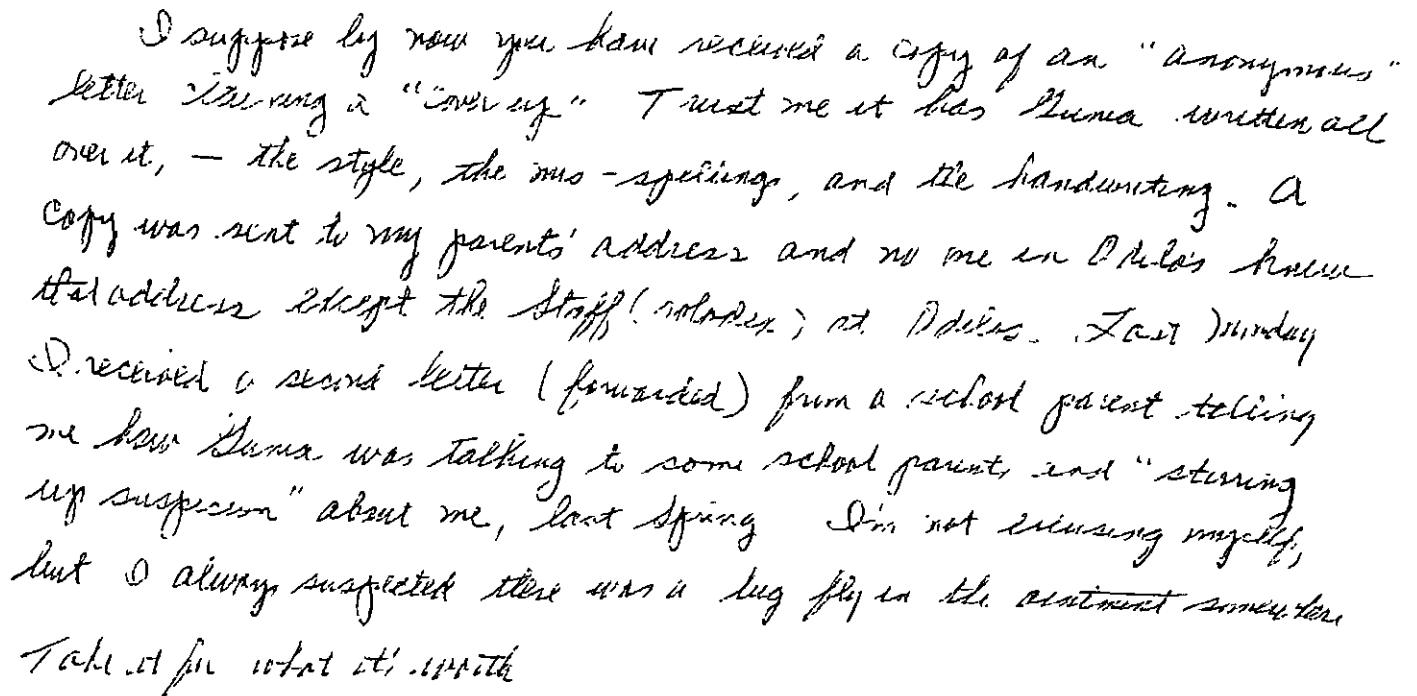 I suppose by now you have received a copy of an "anonymous"
letter a "cover up" Trust me it has written all
over it, — the style, the mis-spellings, and the handwriting. A
copy was sent to my parents' address and no one in Odilo's knew
that address except the Staff (rolodex) at Odilos. Last Sunday
I received a second letter (forwarded) from a school parent telling
me how was talking to some school parents and "stirring
up suspicion" about me, last Spring I'm not excusing myself,
but I always suspected there was a big fly in the ointment somewhere
Take it for what it's worth